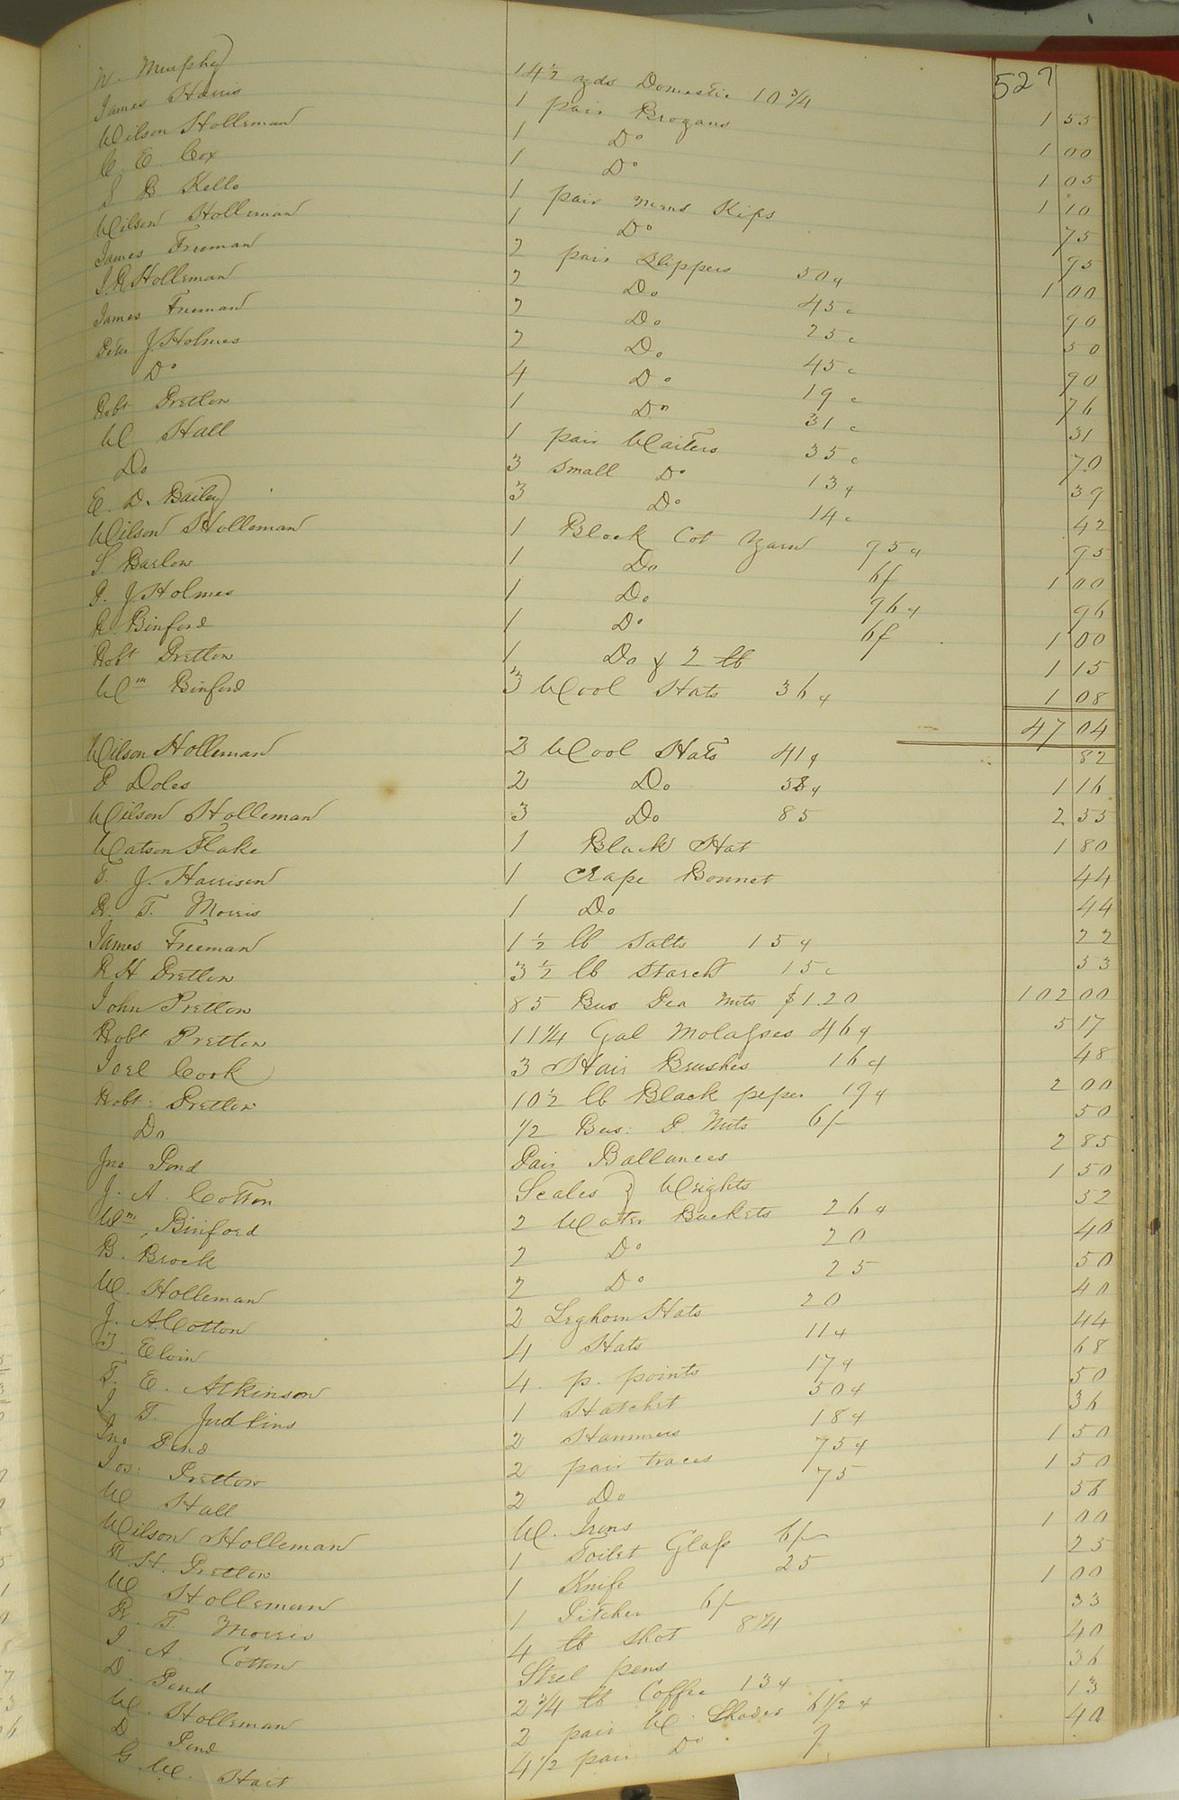 527
W. Murphy 14½ yds Domestic 10 3/4 1 55
James Harris 1 pair Brogans 1 00
Wilson Holleman 1 Do 1 05
C. E. Cox 1 Do 1 10
S B Kello 1 pair mens Kips 75
Wilson Holleman 1 Do 95
James Freeman 2 pair Slippers 50c 1 00
J.R Holleman 2 Do 45c 90
James Freeman 2 Do 25c 50
Peter J Holmes 2 Do 45c 90
Do 4 Do 19c 76
Robt Pretlow 1 Do 31c 31
W Hall 1 pair Waiters 35c 70
Do 3 small Do 13c 39
E. D. Bailey 3 Do 14c 42
Wilson Holleman 1 Block Cot Yarn 95c 95
S Barlow 1 Do 6/ 1 00
P. J Holmes 1 Do 96c 96
R Binford 1 Do 6/ 1 00
Robt Pretlow 1 Do & 2 lb 1 15
Wm Binford 3 Wool Hats 36c 1 08
47 04
Wilson Holleman 2 Wool Hats 41c 82
P Doles 2 Do 58c 1 16
Wilson Holleman 3 Do 85 2 55
Watson Flake 1 Black Hat 1 80
T. J. Harrison 1 Crape Bonnet 44
R. T. Morris 1 Do 44
James Freeman 1½ lb Salts 15c 22
R H Pretlow 3½ lb Starch 15c 53
John Pretlow 85 Bus Pea nuts $1.20 102 00
Robt Pretlow 11¼ Gal Molasses 46c 5 17
Joel Cook 3 Hair Brushes 16c 48
Robt: Pretlow 10½ lb Black peper 19c 2 00
Do ½ Bus: P. Nuts 6/- 50
Jno Pond Pair Ballances 2 85
J. A. Cotton Scales & Weights 1 50
Wm Binford 2 Water Buckets 26c 52
B. Brock 2 Do 20 40
W. Holleman 2 Do 25 50
J. A. Cotton 2 Leghorn Hats 20 40
T. Elvin 4 Hats 11c 44
T. E. Atkinson 4 p. points 17c 68
J T. Judkins 1 Hatchet 50c 50
Jno Pond 2 Hammers 18c 36
Jos: Pretlow 2 pair traces 75c 1 50
W Hall 2 Do 75 1 50
Wilson Holleman W. Irons 58
R. H. Pretlow 1 Toilet Glass 6/- 1 00
W Holleman 1 Knife 25 25
R. T. Morris 1 Pitcher 6/- 1 00
J. A. Cotton 4 lb Shot 8¼ 33
D. Pond Steel pens 40
W. Holleman 2 3/4 lb Coffee 13c 36
D. Pond 2 pair W. Shoes 6½c 13
G. W. Hart 4½ pair Do 9 40